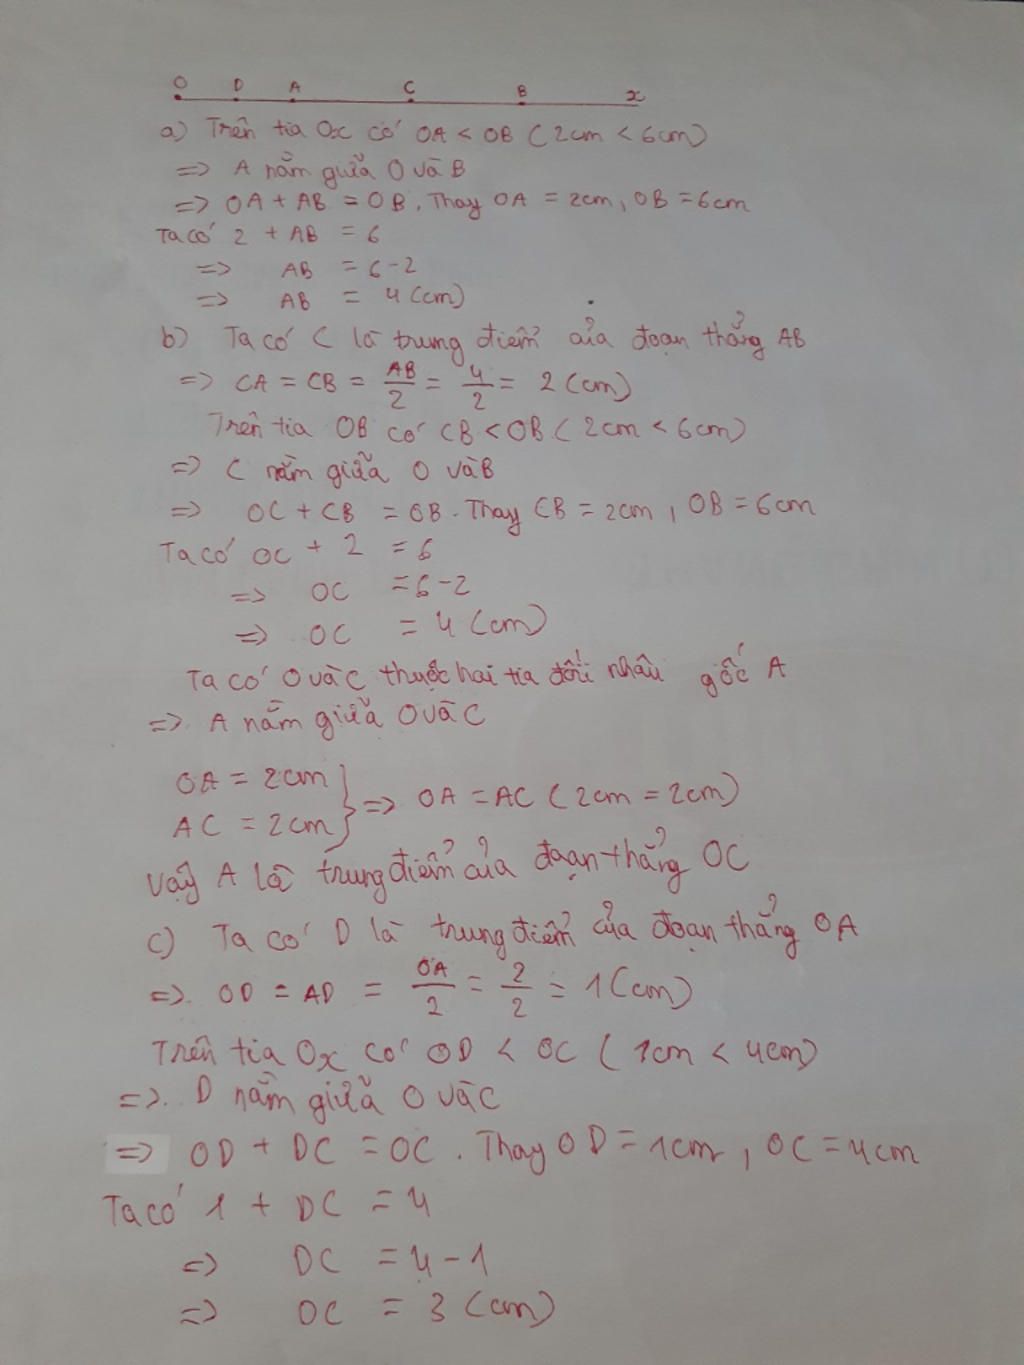 O D A C B x
a) Trên tia Ox có OA < OB (2cm < 6cm)
=> A nằm giữa O và B
=> OA + AB = OB. Thay OA = 2cm, OB = 6cm
Ta có 2 + AB = 6
=> AB = 6-2
=> AB = 4 (cm)
b) Ta có C là trung điểm của đoạn thẳng AB
=> CA = CB = AB/2 = 4/2 = 2 (cm)
Trên tia OB có CB < OB (2cm < 6cm)
=> C nằm giữa O và B
=> OC + CB = OB. Thay CB = 2cm, OB = 6cm
Ta có OC + 2 = 6
=> OC = 6-2
=> OC = 4 (cm)
Ta có O và C thuộc hai tia đối nhau gốc A
=> A nằm giữa O và C
OA = 2cm
AC = 2cm } => OA = AC (2cm = 2cm)
Vậy A là trung điểm của đoạn thẳng OC
c) Ta có D là trung điểm của đoạn thẳng OA
=> OD = AD = OA/2 = 2/2 = 1 (cm)
Trên tia Ox có OD < OC (1cm < 4cm)
=> D nằm giữa O và C
=> OD + DC = OC. Thay OD = 1cm, OC = 4cm
Ta có 1 + DC = 4
=> DC = 4-1
=> OC = 3 (cm)